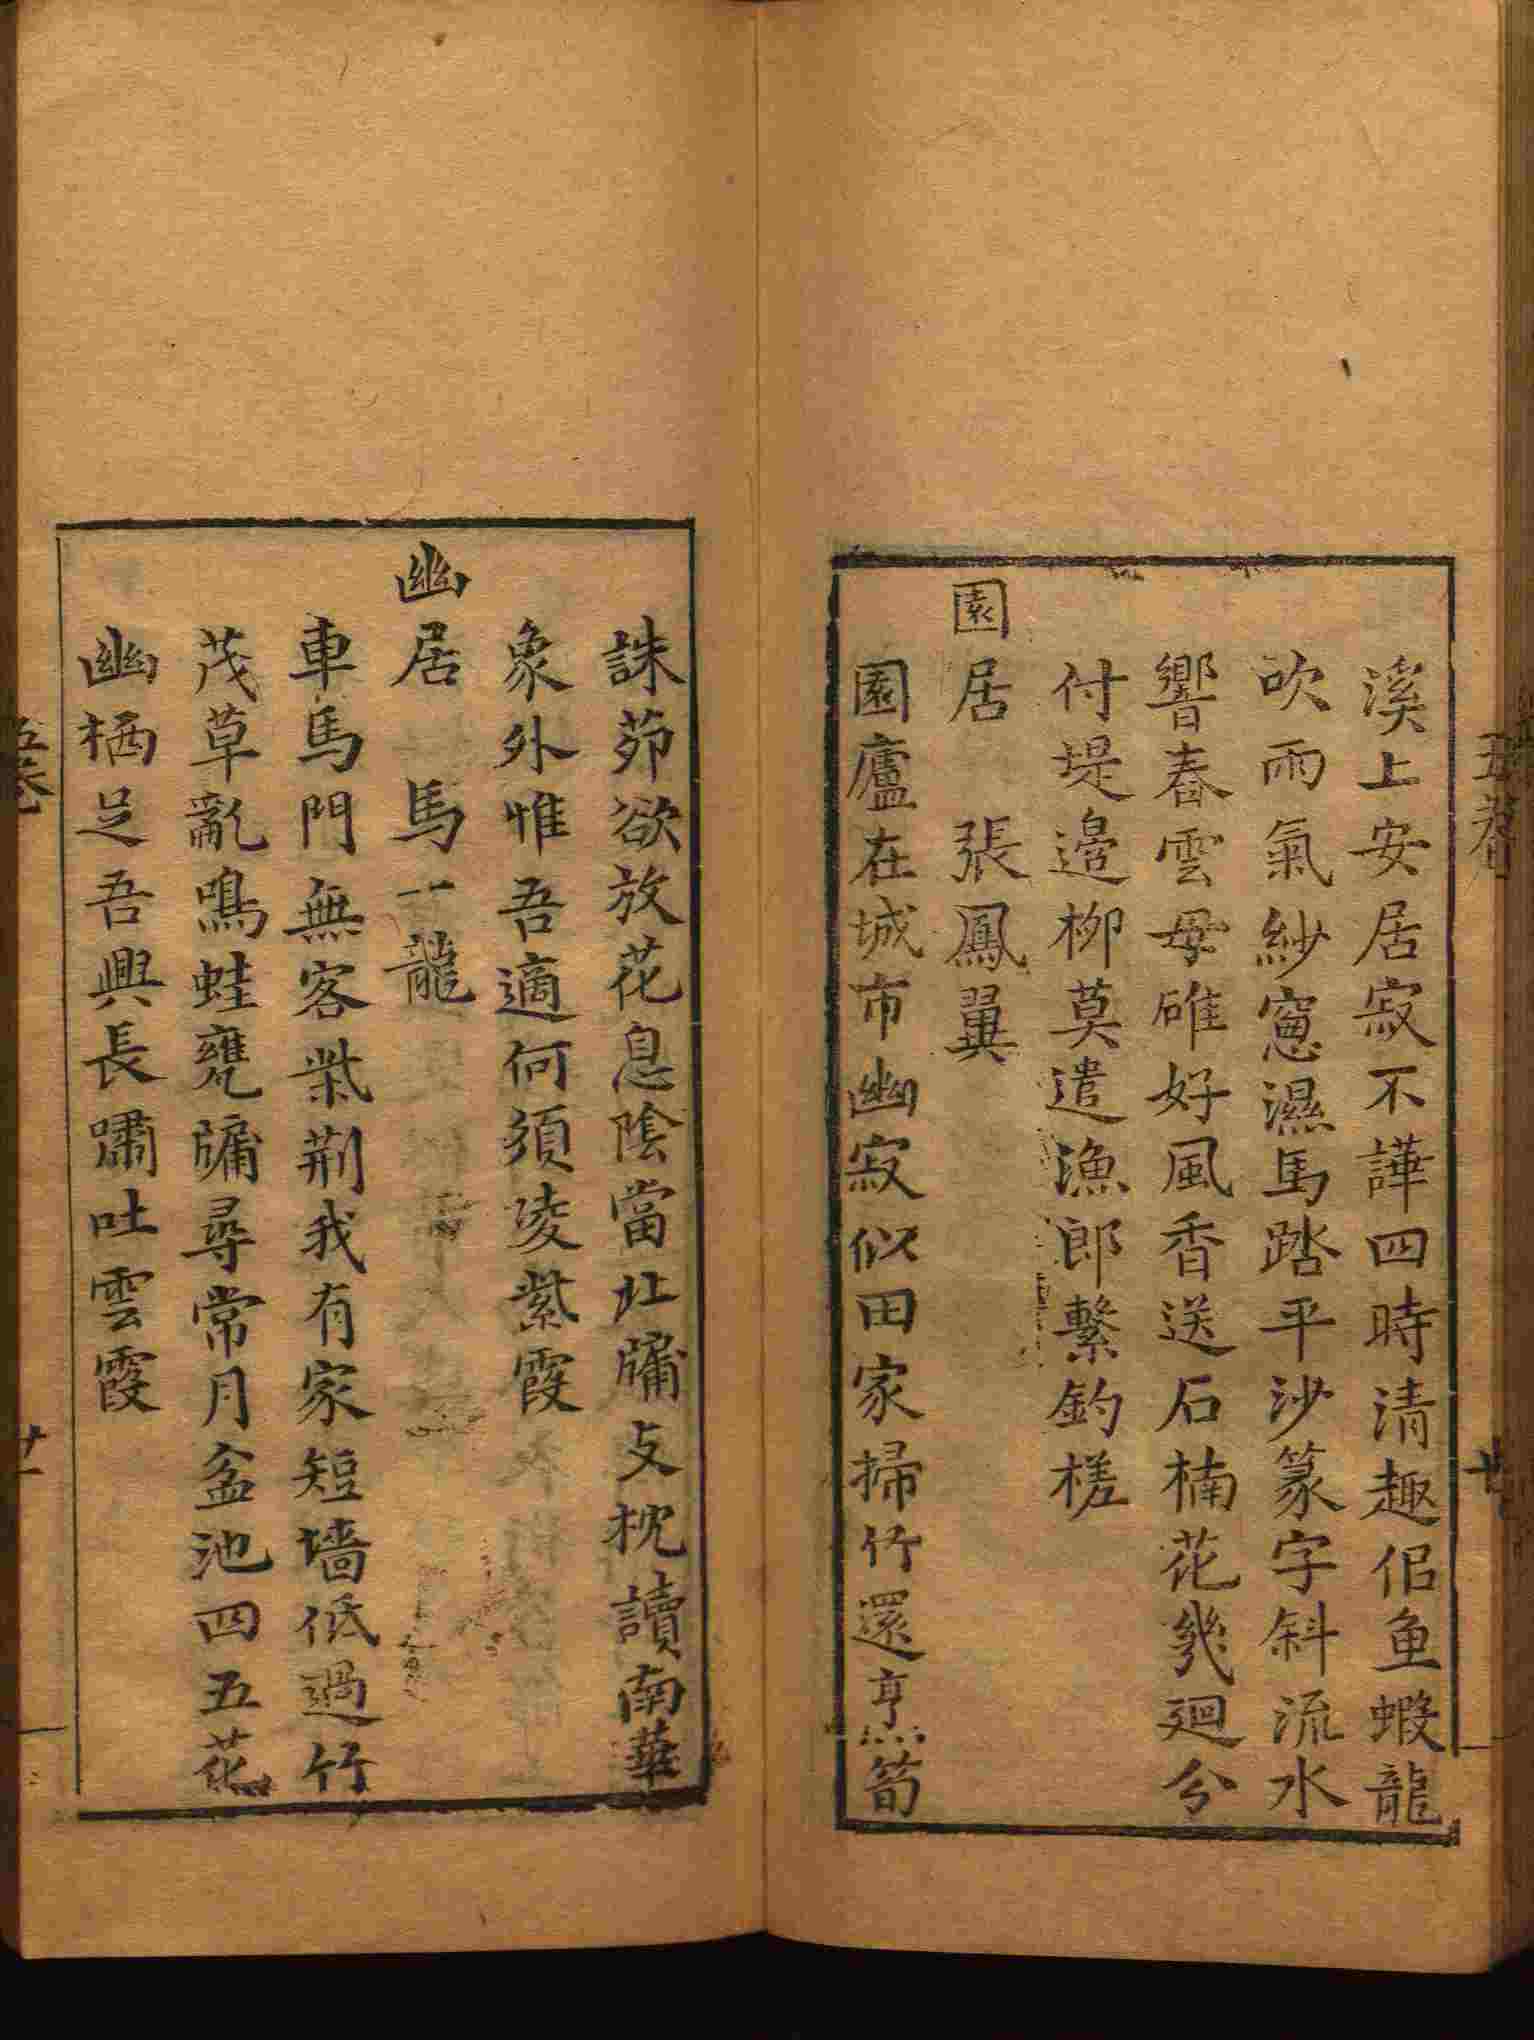 五卷
廿
溪上安居寂不譁四時清趣侣鱼蝦龍
吹雨氣紗窻濕馬踏平沙篆字斜流水
響舂雲母碓好風香送石楠花幾廻分
付堤邉柳莫遣漁郎繫釣槎
園居 張鳳翼
園廬在城市幽寂似田家掃竹還烹筍
誅茆欲放花息陰當北牖支枕讀南華
象外惟吾適何須凌紫霞
幽居 馬一龍
車馬門無客柴荆我有家短墻低過竹
茂草亂鳴蛙甕牖尋常月盆池四五花
幽栖足吾興長嘯吐雲霞
五卷
廿一